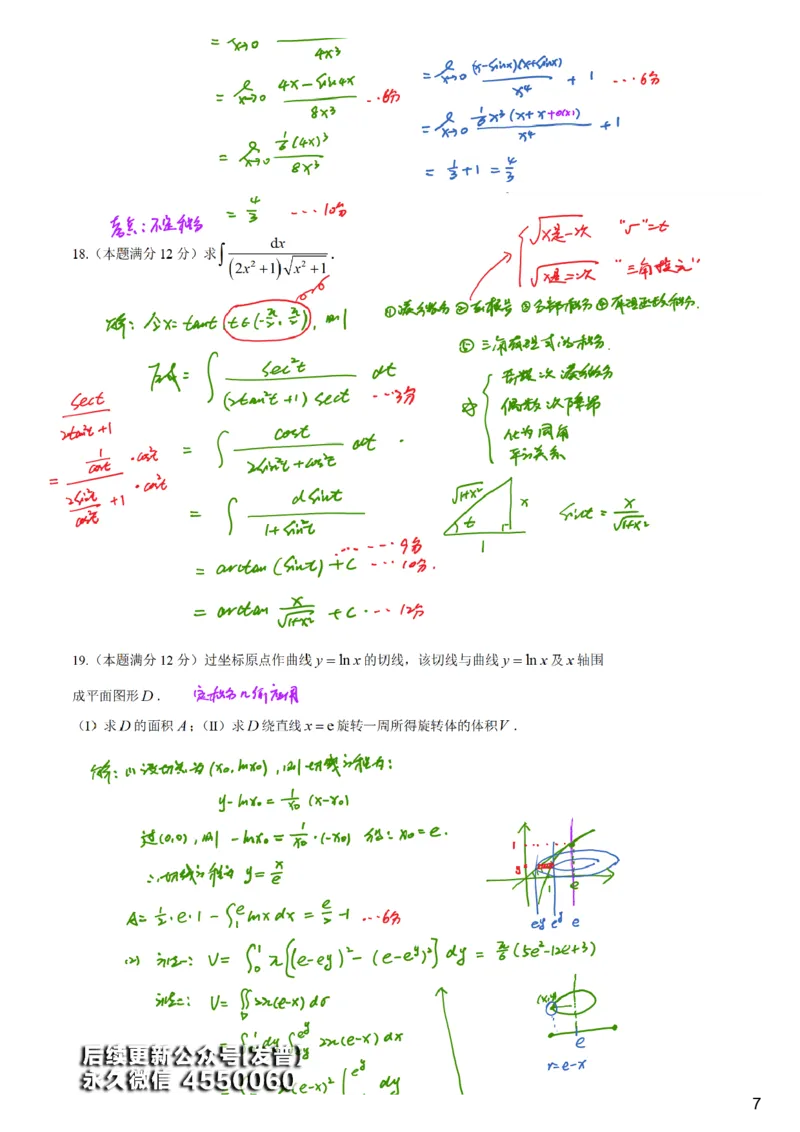 = lim x→0 ———— 4x³
= lim x→0 (4x − sin4x)/(8x³) ···8分
= lim x→0 (1/6(4x)³)/(8x³)
= 4/3 ···10分
= lim x→0 (x−sinx)(x+sinx)/x⁴ + 1 ···6分
= lim x→0 (1/6x³(x+x+o(x)))/x⁴ + 1
= 1/3 + 1 = 4/3
考点:不定积分
18.(本题满分 12 分)求∫ dx/((2x²+1)√(x²+1)) .
√x是一次 "√"=t
√x是二次 "三角换元"
解:令x=tant (t∈(-π/2, π/2)), 则
①凑微分 ②去根号 ③分部积分 ④有理函数积分.
⑤三角有理式的积分.
原式= ∫ sec²t/((2tan²t+1)sect) dt ···3分
奇数次 凑微分
偶数次 降幂
化为同角
平方关系
sect/(2tan²t+1)
= (1/cost ·cos²t)/((2sin²t/cos²t +1) ·cos²t)
= ∫ cost/(2sin²t+cos²t) dt
= ∫ dsint/(1+sin²t)
√(1+x²) x t 1
sint = x/√(1+x²)
= arctan(sint)+C ···9分 ···10分.
= arctan x/√(1+x²) +C ···12分
19.(本题满分 12 分)过坐标原点作曲线 y=lnx 的切线,该切线与曲线 y=lnx 及 x 轴围
成平面图形 D . 定积分几何应用
(Ⅰ)求 D 的面积 A ;(Ⅱ)求 D 绕直线 x=e 旋转一周所得旋转体的体积 V .
解:(1)设切点为(x₀,lnx₀),则切线方程为:
y-lnx₀= 1/x₀ (x-x₀)
过(0,0),则 -lnx₀= 1/x₀·(-x₀) 得: x₀=e.
∴切线方程为 y= x/e
1 y 1 e
ey e^y e
A= 1/2·e·1 − ∫₁^e lnxdx = e/2 -1 ···6分
(2) 法一: V= ∫₀¹ π[(e-ey)²-(e-e^y)²]dy = π/6(5e²-12e+3)
法二: V= ∬_D 2π(e-x)dσ
(x,y)
e
r=e-x
= ∫₀¹dy∫ e^y 2π(e-x)dx
(e-x)² | e^y dy
后续更新公众号[发普]
永久微信 4550060
7